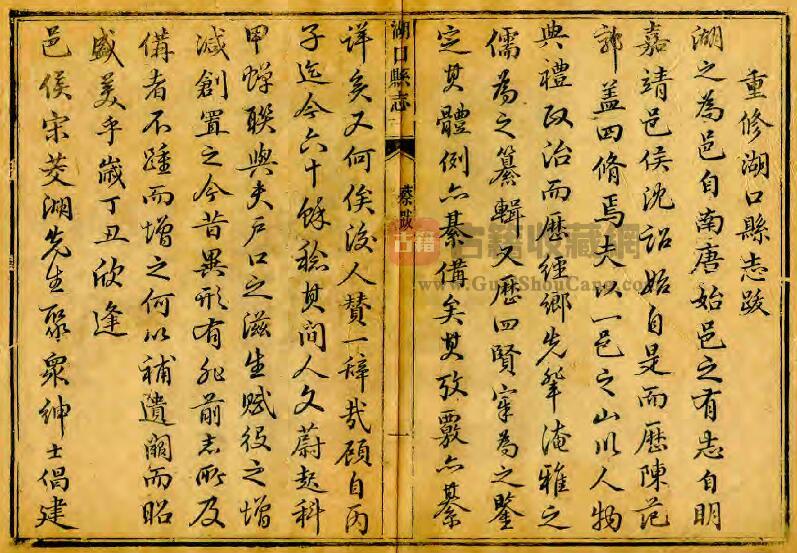 重修湖口縣志跋
湖之為邑自南唐始邑之有志自明
嘉靖邑侯沈詔始自是而歷陳范
郭盖四脩焉夫以一邑之山川人物
典禮政治而歷經鄉先輩淹雅之
儒為之纂輯又歷四賢宰為之鑒
定其體例亦綦備矣其攷覈亦綦
湖口縣志
蔡跋
一
詳矣又何俟後人贊一辭哉顧自丙
子迄今六十餘稔其间人文蔚起科
甲蟬聯與夫戶口之滋生賦役之增
減創置之今昔異形有非前志所及
備者不踵而增之何以補遺闕而昭
盛美乎歲丁丑欣逢
邑侯宋菱湖先生聚衆紳士倡建
古籍
古籍收藏網
www.GuJiShouCang.com